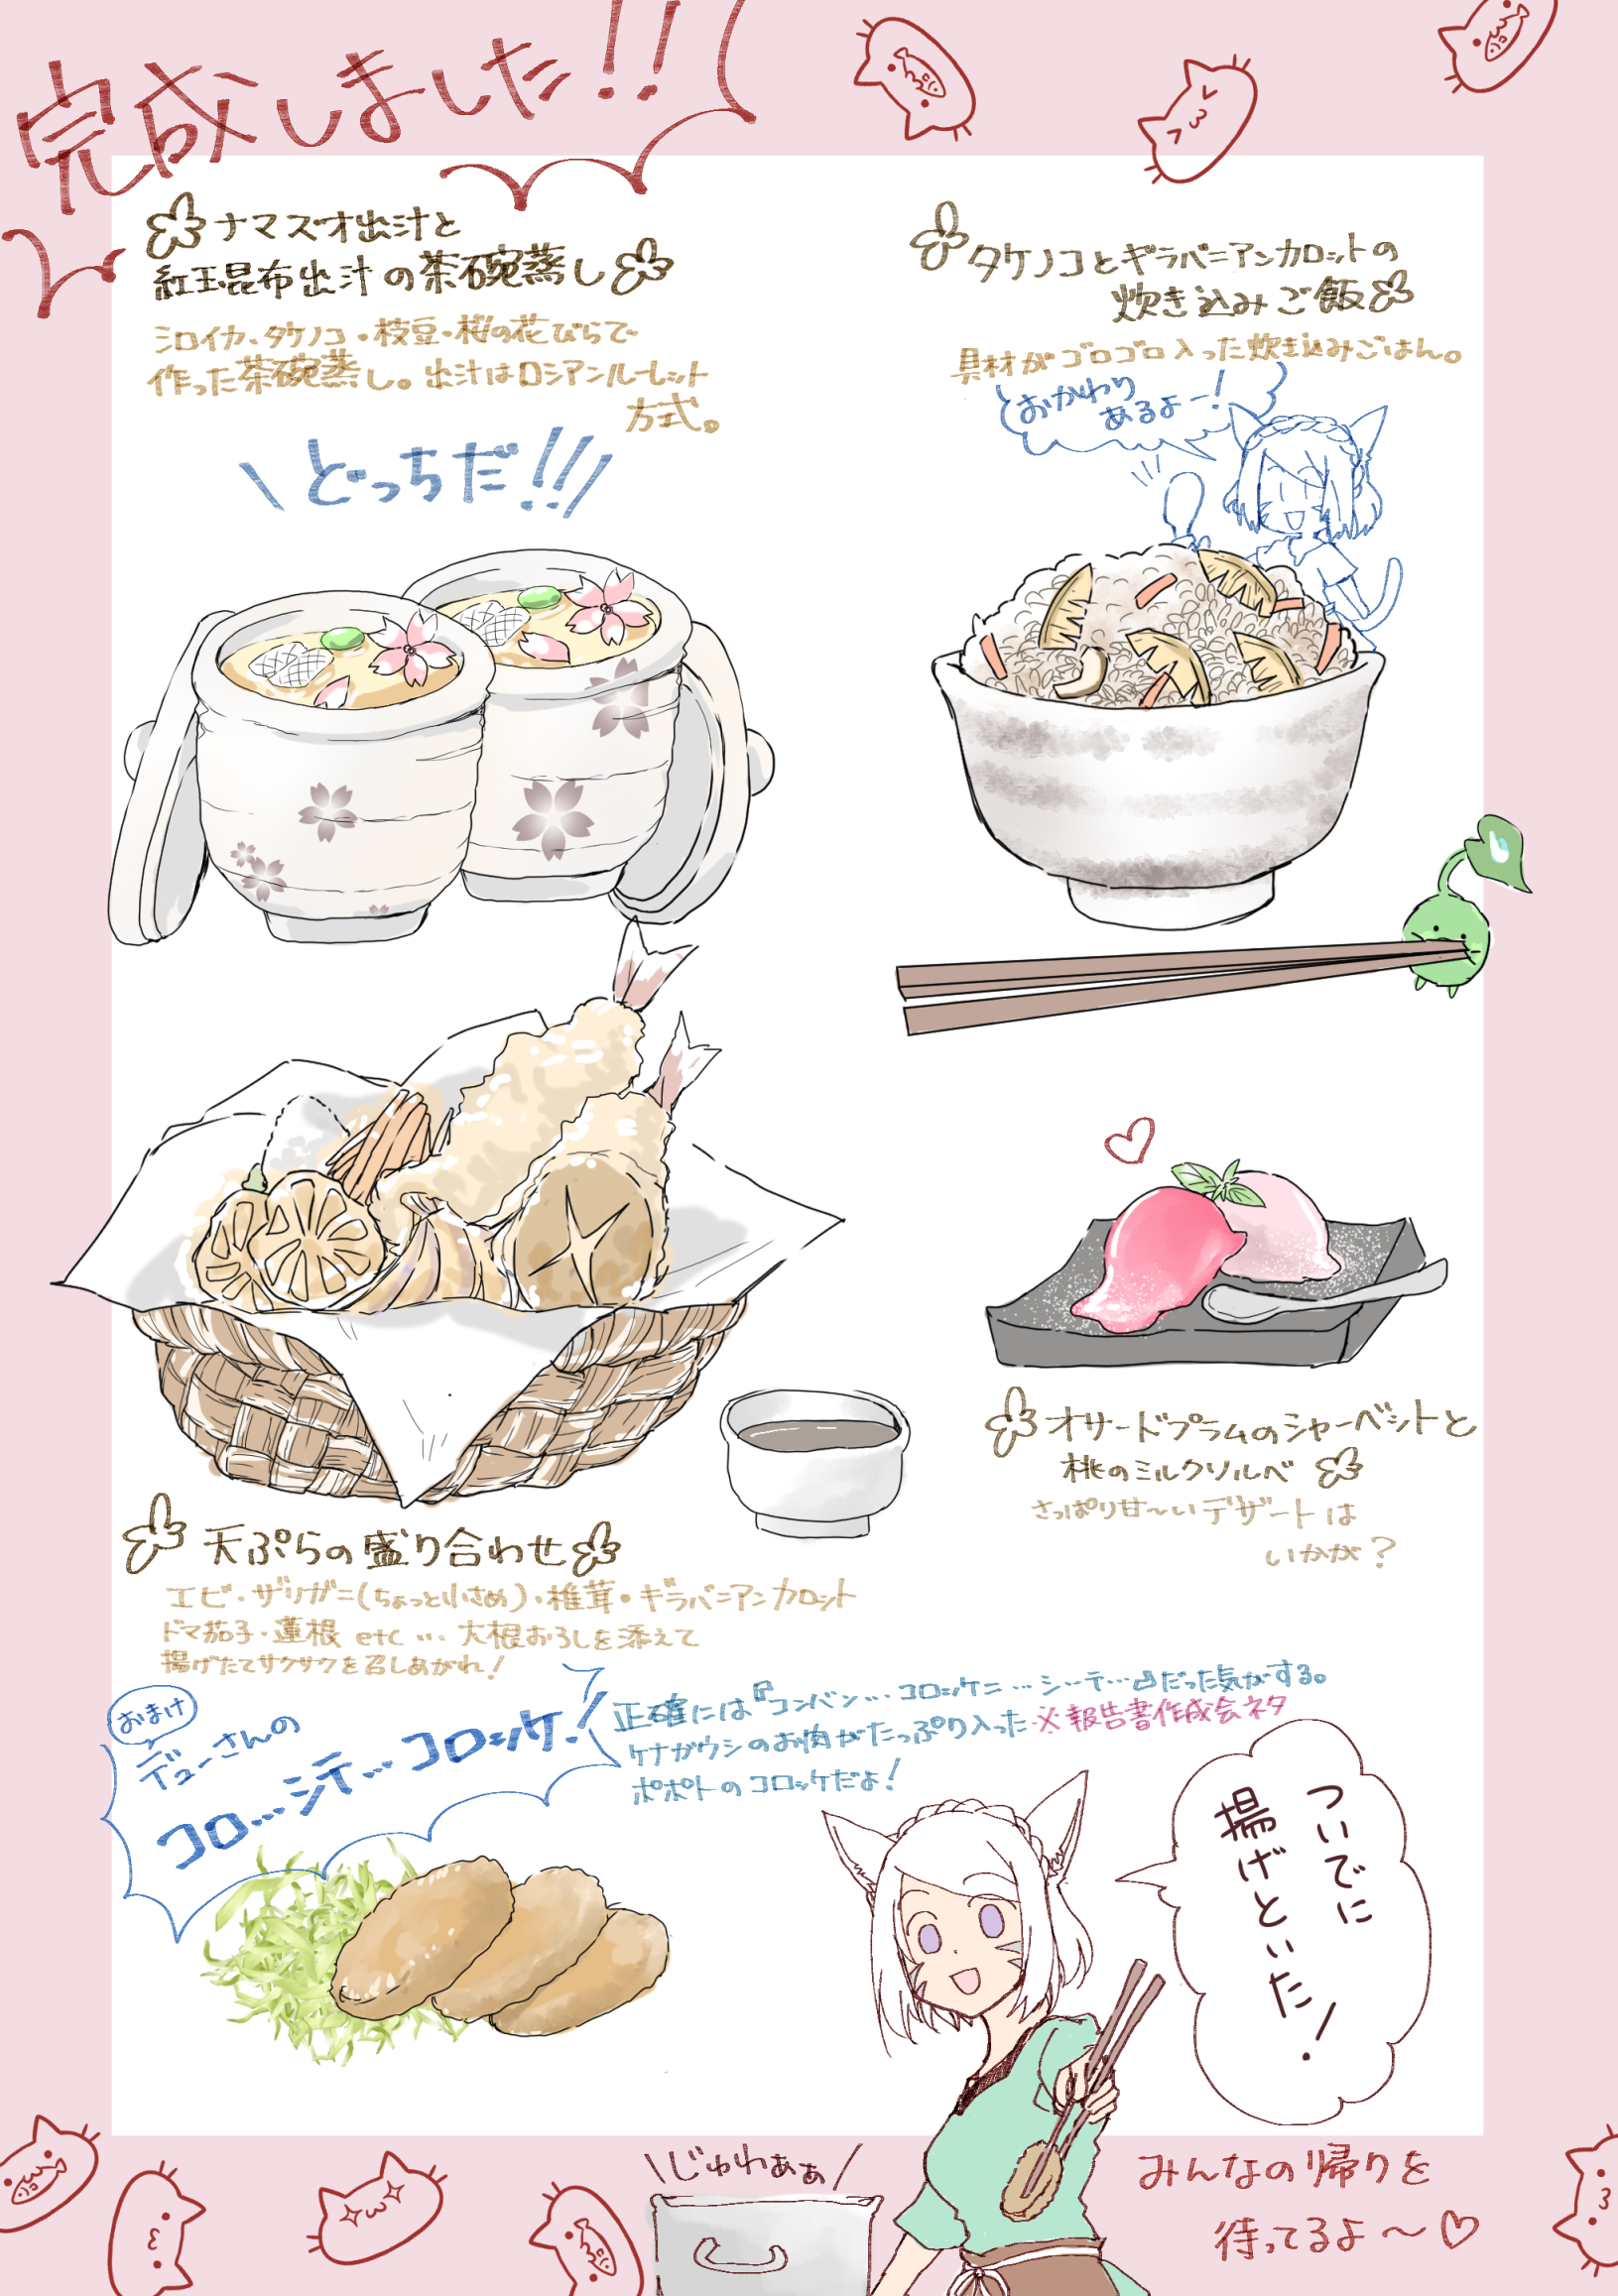 完成しました!!
ナマズオ出汁と
紅玉昆布出汁の茶碗蒸し
シロイカ・タケノコ・枝豆・桜の花びらで
作った茶碗蒸し。出汁はロシアンルーレット
方式。
\どっちだ!!!/
タケノコとギラバニアンカロットの
炊き込みご飯
具材がゴロゴロ入った炊き込みごはん。
おかわり
あるよー!
天ぷらの盛り合わせ
エビ・ザリガニ(ちょっと小さめ)・椎茸・ギラバニアンカロット
ドマ茄子・蓮根 etc … 大根おろしを添えて
揚げたてサクサクを召しあがれ!
オサードプラムのシャーベットと
桃のミルクソルベ
さっぱり甘〜いデザートは
いかが?
おまけ
デューさんの
コロ…シテ…コロッケ!
正確には『コンバン…コロッケニ…シーテ…』だった気がする。
ケナガウシのお肉がたっぷり入った ※報告書作成会ネタ
ポポトのコロッケだよ!
ついでに
揚げといた!
\じゅわぁぁ/
みんなの帰りを
待ってるよ〜♡